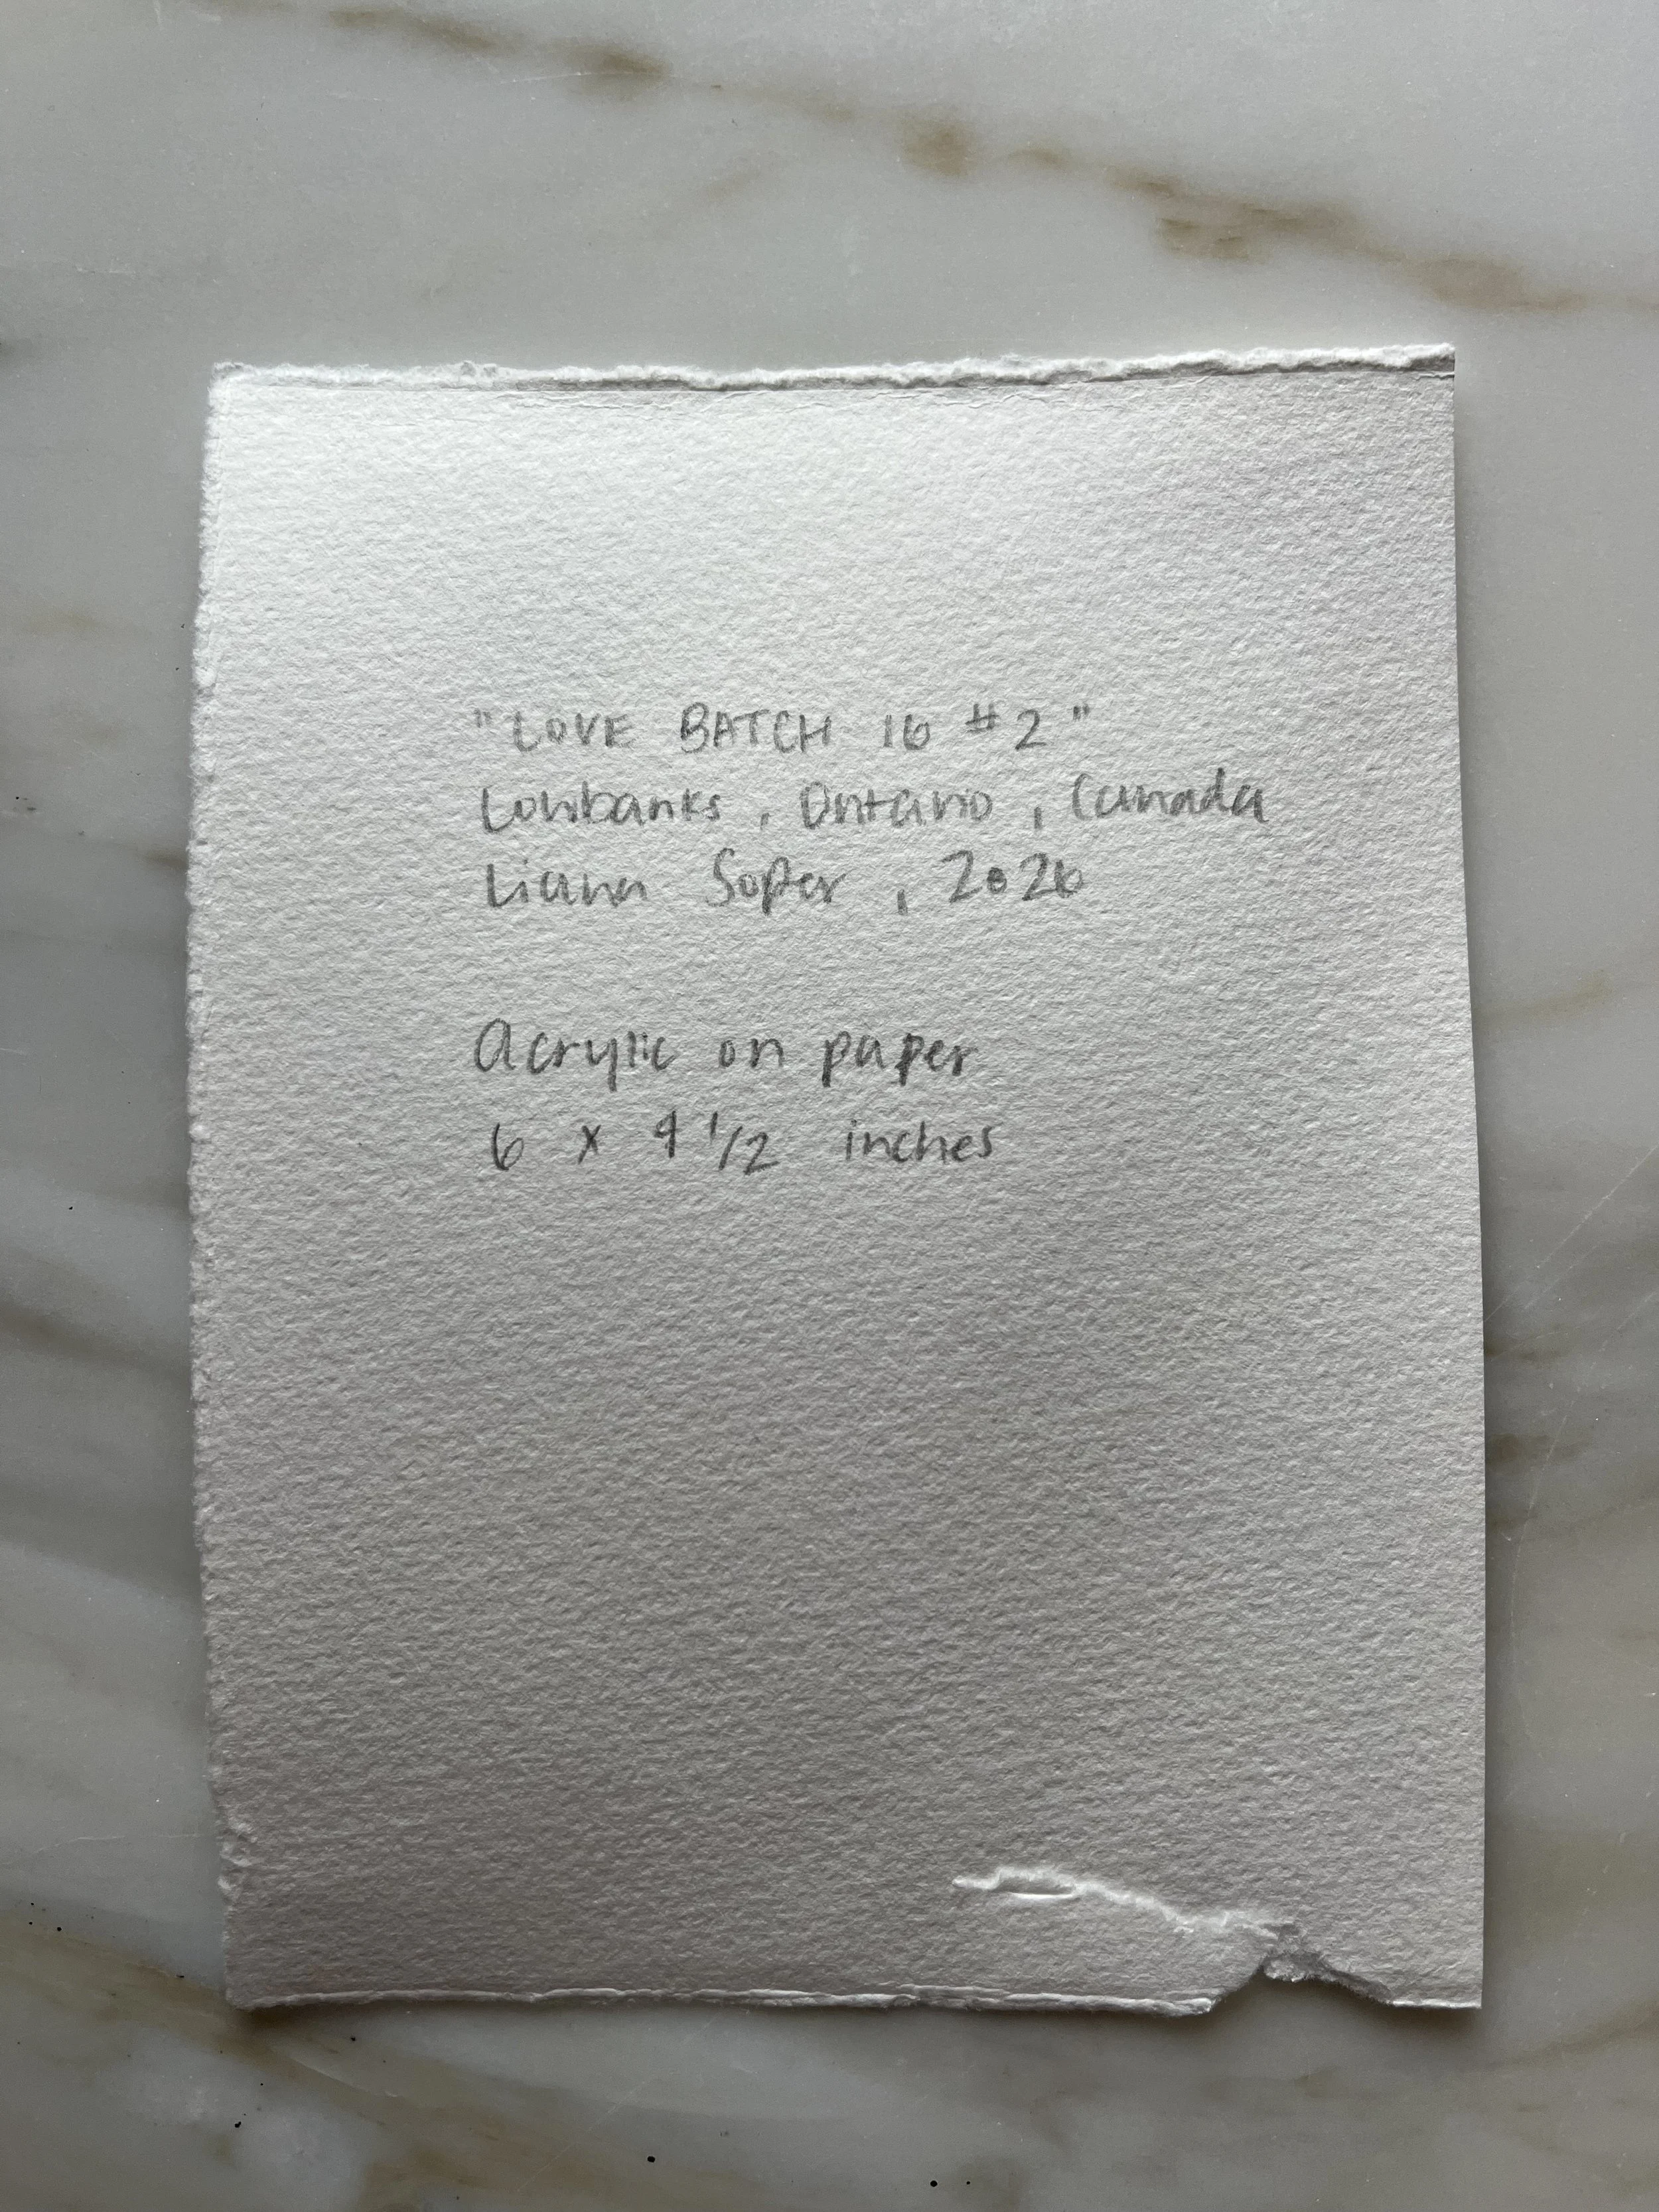 "LOVE BATCH 16 #2"
Lowbanks, Ontario, Canada
Liana Soper, 2026
Acrylic on paper
6 x 4 1/2 inches